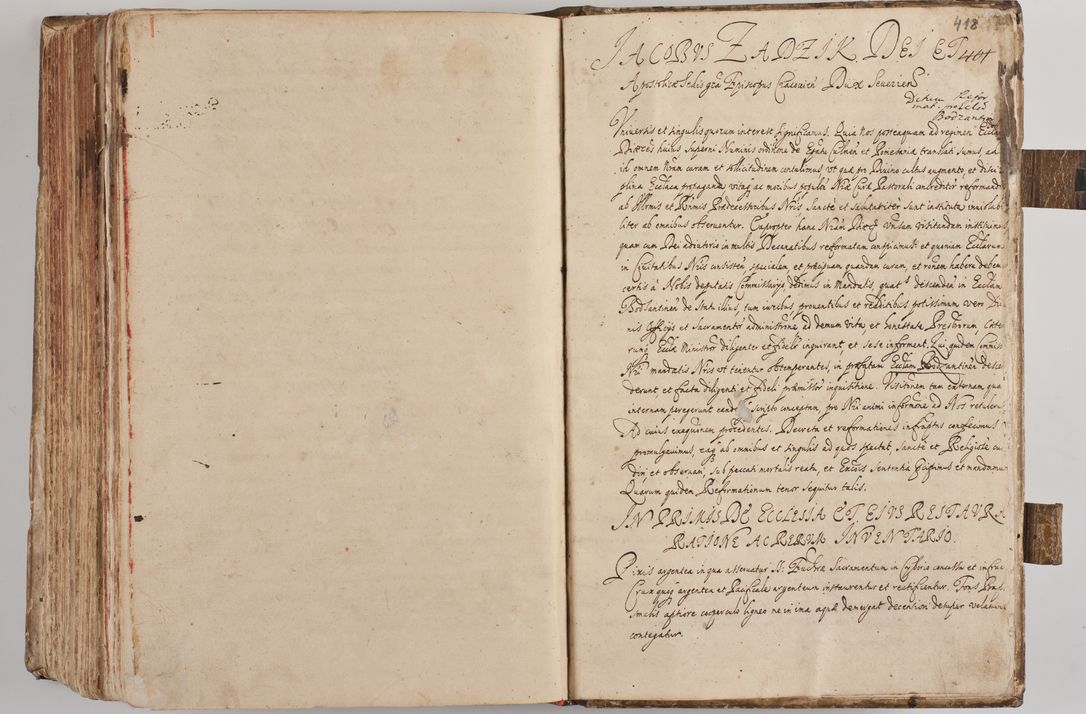 418
JACOBVS ZADZIK DEI ET
401
Apostolicæ Sedis grã Episcopus Cracovien Dux Severien
Decretu Refor
mat. pro Eccl.
Bodzantin
Vniversis et singulis quorum interest significamus. Quia Nos posteaquam ad regimen Eccliæ
Diæcesis huius Superni Numinis ordine de Epatu Culmen et Pomesaniæ translati sumus, ad
id omnem Nram curam et sollicitudinem contulimus vt quæ pro Divino cultus augmento, et disci
plina Ecclãæ propaganda vitaq ac moribus populi Niæ Curæ Pastorali concreditor reformand
ab Illrmis et Rnmis Prædecessoribus Nris sancte et salutariter sunt instituta inviolabi
liter ab omnibus observentur. Eapropter hanc Nram Diæc vnsam visitandam instituimus
quam cum Dei adiutorio in multis Decanatibus reformatam conspicimus: et quoniam Ecclarum
in Civitatibus Niis consisten, specialem, et præcipuam quandam curam, et ronem habere debem
certis à Nobis deputatis Commissarijs dedimus in Mandatis, quat descenden in Ecclam
Bodsantinen de statu illius, tum iuribus, proventibus et redditibus potissimum vero Di
nis Officijs et Sacramentor administrone ad demum Vita et honestate Presbrorum, Cæte
rumq Ecclæ Ministror diligenter et fideliter inquirant, et sese informent. Qui quidem Commiss
Nri mandatis Nris vt tenentur obtemperantes, in præfatam Ecclam Bodzantinen desce
derunt et facta diligenti et fideli præmissor inquisitione. Visitonem tam externam, quã
internam peregerunt eandq Scripto conceptam, pro Niã animi informone ad Nos retulerũ
Ad cuius exequonem procedentes. Decreta et reformationes infrascptas confecimus
promulgavimus, eaq ab omnibus et singulis ad quos spectat, sancte et Religiose cu
diri et observari, sub peccati mortalis reatu, et Excois sententia volumus et mandamus
Quarum quidem Reformationum tenor sequitur talis.
IN PRIMIS DE ECCLESIA ET EIVS RESTAVRA
RATIONE AC RERVM INVENTARIO.
Pixis argentea in qua asservatur SS: Euchræ Sacramentum in Cyborio concussa et infrac
Crux quoq argentea et Pacificale argenteum instaurentur et rectificentur. Fons Bap
smalis aptiore coopercuto ligneo ne in ima aquæ demergat decention semper velamine
contegatur.